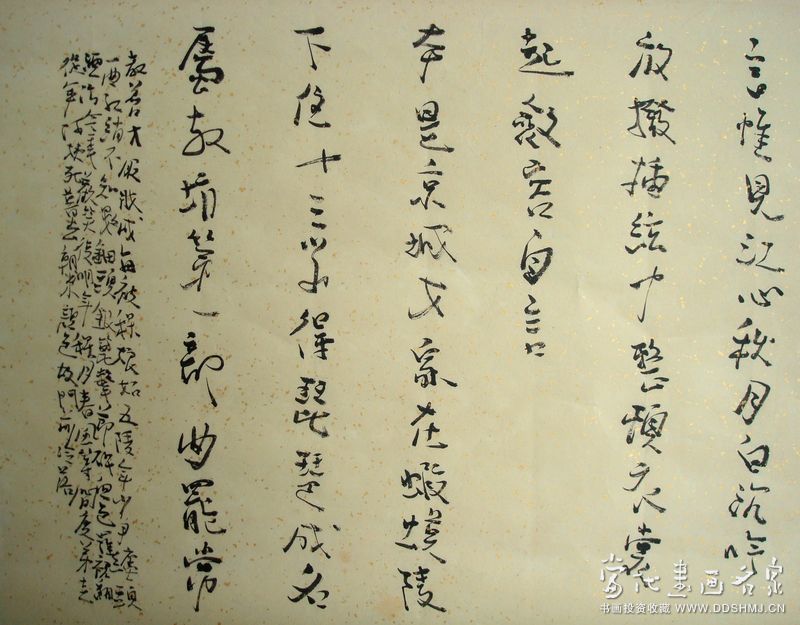 言惟見江心秋月白沉吟
放撥插絃中整頓衣裳
起斂容自言
本是京城女家在蝦蟆陵
下住十三學得琵琶成名
屬教坊第一部曲罷常
教善才服妝成每被秋娘妬五陵年少爭纏頭
一曲紅綃不知數鈿頭銀篦擊節碎血色羅裙翻
酒污今年歡笑復明年秋月春風等閒度弟走
從軍阿姨死暮去朝來顏色故門前冷落
當代書画名家
书画投资收藏 WWW.DDSHMJ.CN